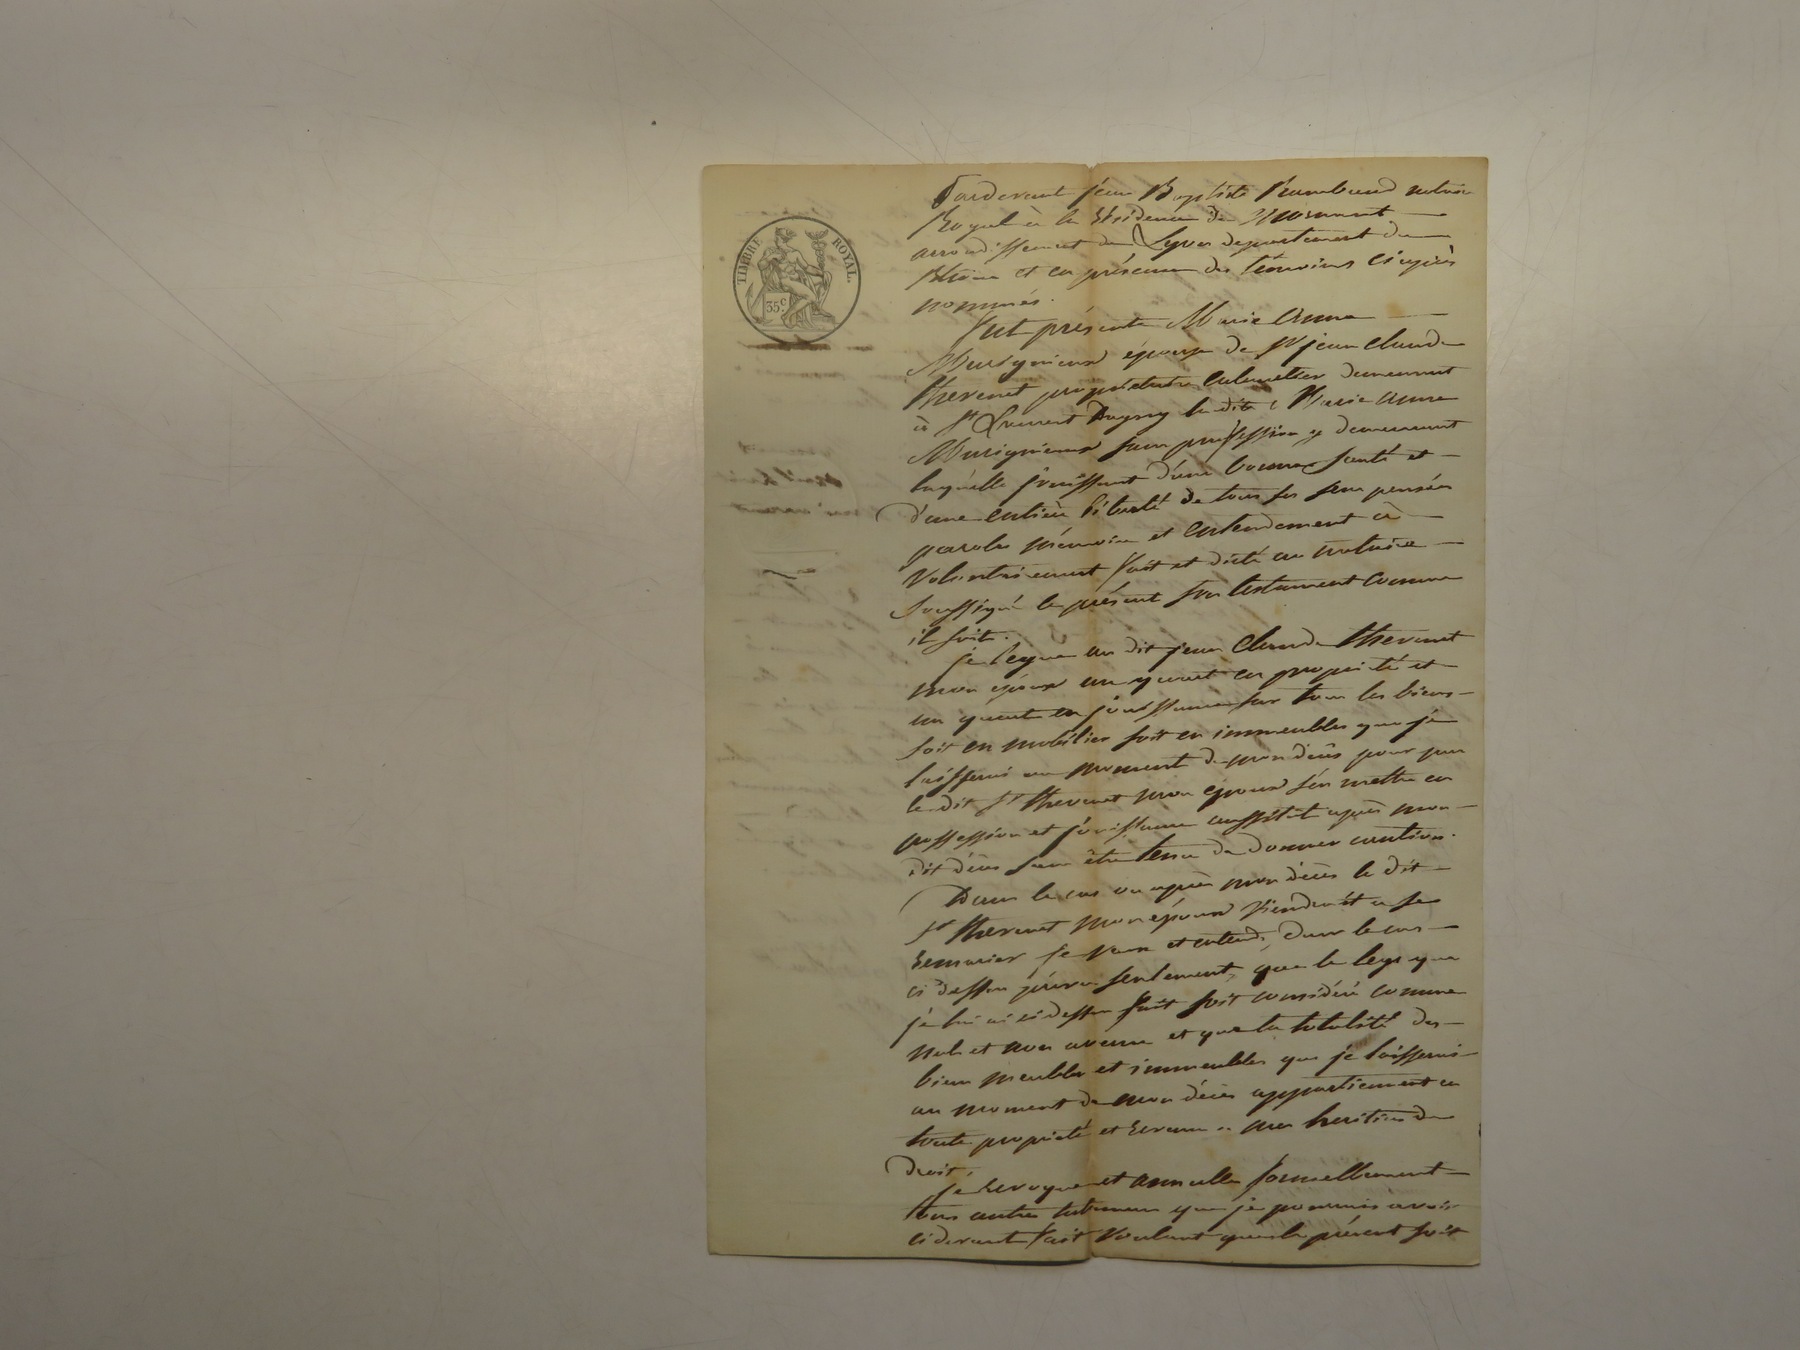 TIMBRE ROYAL
35c.
Pardevant jean Baptiste Rambaud notaire
Royal à la Résidence de Mornant
arrondissement de Lyon departement du
Rhône et en présence des témoins ci après
nommés.
fut présente Marie Anne
épouse de Sr jean Claude
thevenet propriétaire demeurant
à St Laurent Dagny la dite Marie Anne
sans proffession y demeurant
laquelle jouissant d'une bonne santé et
d'une entière liberté de tous ses sens pensées
parole mémoire et entendement a
volontairement fait et dicté au notaire
soussigné le présent son testament comme
il suit.
je legue au dit jean Claude thevenet
mon époux un quart en propriété et
un quart en jouissance sur tous les biens
soit en mobilier soit en immeubles que je
laisserai au moment de mon décès pour par
le dit Sr thevenet mon époux s'en mettre en
possession et jouissance aussitot après mon
dit décès sans être tenu de donner caution.
Dans le cas ou après mon décès le dit
Sr thevenet mon époux viendroit a se
remarier je veux et entends, dans le cas
ci dessus prévu seulement, que le legs que
je lui ai ci dessus fait soit considéré comme
nul et non avenu et que la totalité des
biens meubles et immeubles que je laisserai
au moment de mon décès appartiennent en
toute propriété et a mes heritiers de
droit.
je revoque et annulle formellement
tous autres testamens que je pourrois avoir
ci devant fait voulant que le présent soit